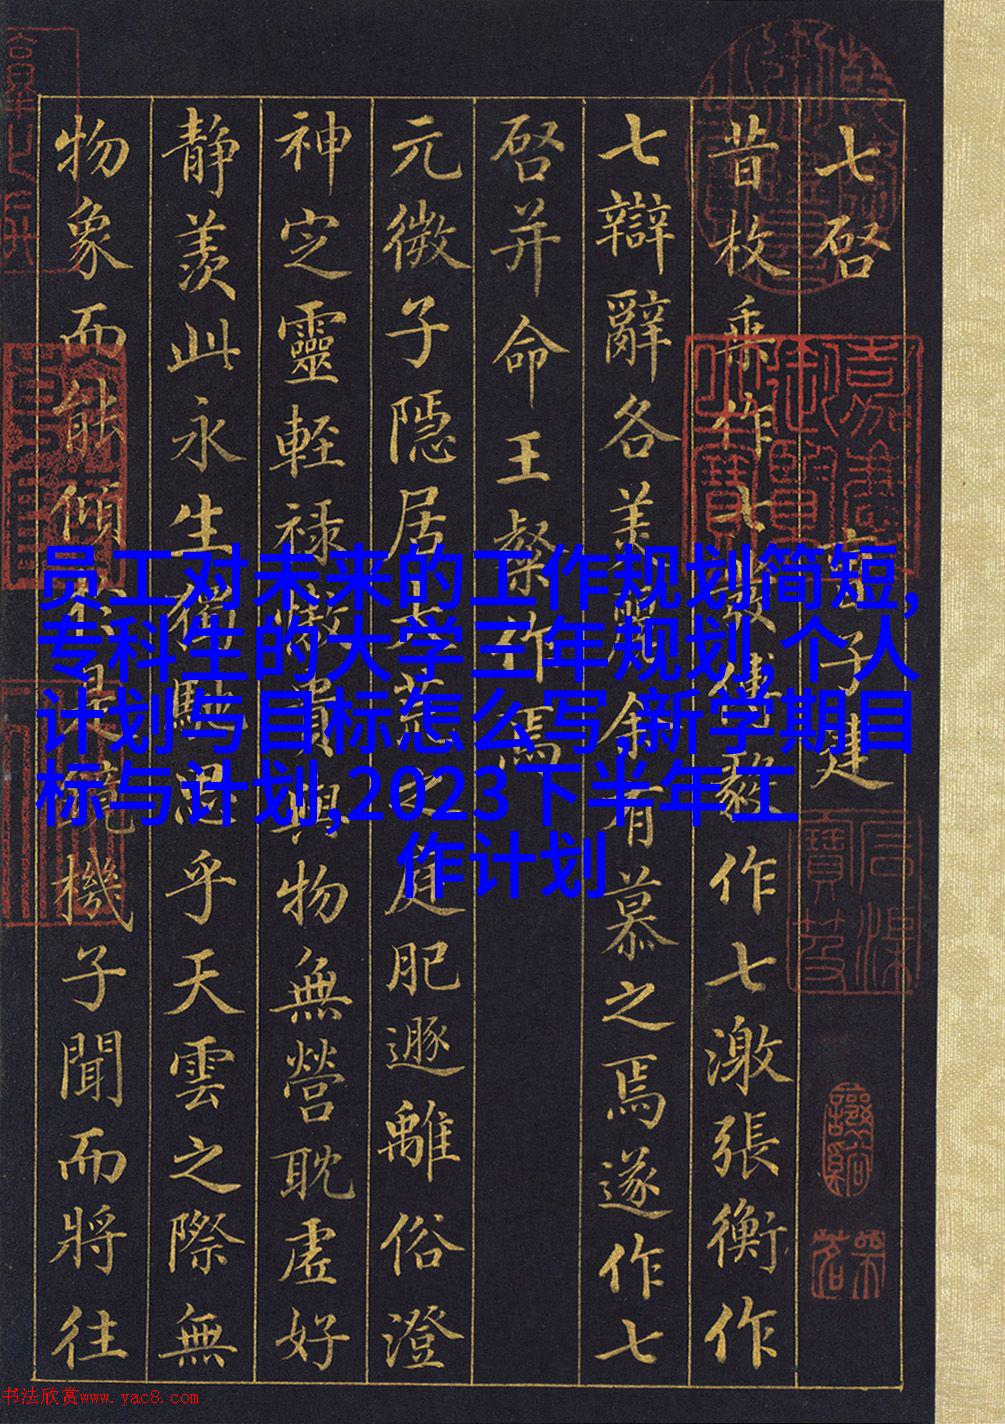 七啓 子建
昔枚乘作七發傅毅作七激張衡作
七辯辭各美麗余有慕之焉遂作七
啓并命王粲作焉
元微子隱居大荒之庭肥遯離俗澄
神定靈輕祿傲貴與物無營耽虛好
靜羨此永生獨馳思乎天雲之際無
物象而能傾於是鏡機子聞而將往
员工对未来的工作规划简短,
专科生的大学三年规划,个人
计划与目标怎么写,新学期目
标与计划,2023下半年工
作计划
书法欣赏www.yac8.com